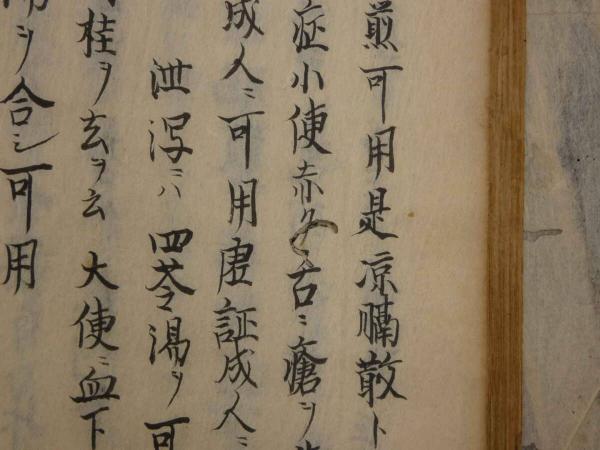 煎可用是凉膈散ト
症小便赤ク舌ニ瘡ヲ
成人ニ可用虚証成人ニ
泄泻ニハ四苓湯ヲ可
桂ヲ去ヲ云大便ニ血下
湯ヲ合シ可用